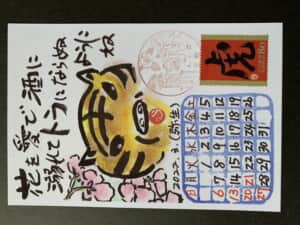 花を愛で酒に
溺れてトラにならぬ
ように
ね
虎
2022.3.(弥生)
日月火水木金土
1 2 3 4 5
6 7 8 9 10 11 12
13 14 15 16 17 18 19
20 21 22 23 24 25 26
27 28 29 30 31